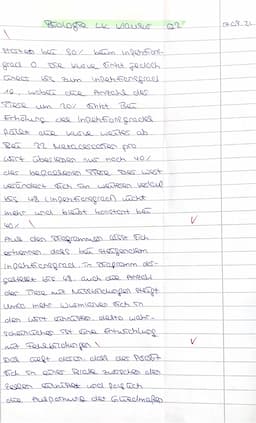 Biologie LK Klausur Q2
startet bei 80% beim Infektions-
grad 0. Die Kurve sinkt jedoch
bis zum Infektionsgrad
16, wobei die Anzahl der
Tiere um 20% sinkt. Bei
Erhöhung des Infektionsgrades
fällt die Kurve weiter ab
Bei 32 Metacercarien pro
Wirt überleben nur noch 40%
der befallenen Tiere. Der Wert
verändert sich im weiteren Verlauf
bis 48 (Infektionsgrad) nicht
mehr und bleibt konstant bei
40%.
Aus den Diagrammen lässt sich
erkennen, dass bei steigendem
Infektionsgrad, in Diagramm dar-
gestellt bis 48, auch die Anzahl
der Tiere mit steigt
Umso mehr sich in
den Wirt desto wahr-
scheinlicher ist eine Entwicklung
mit
Das liegt daran, dass der Parasit
sich in einer zwischen den
einnistet und
die der Gliedmaßen